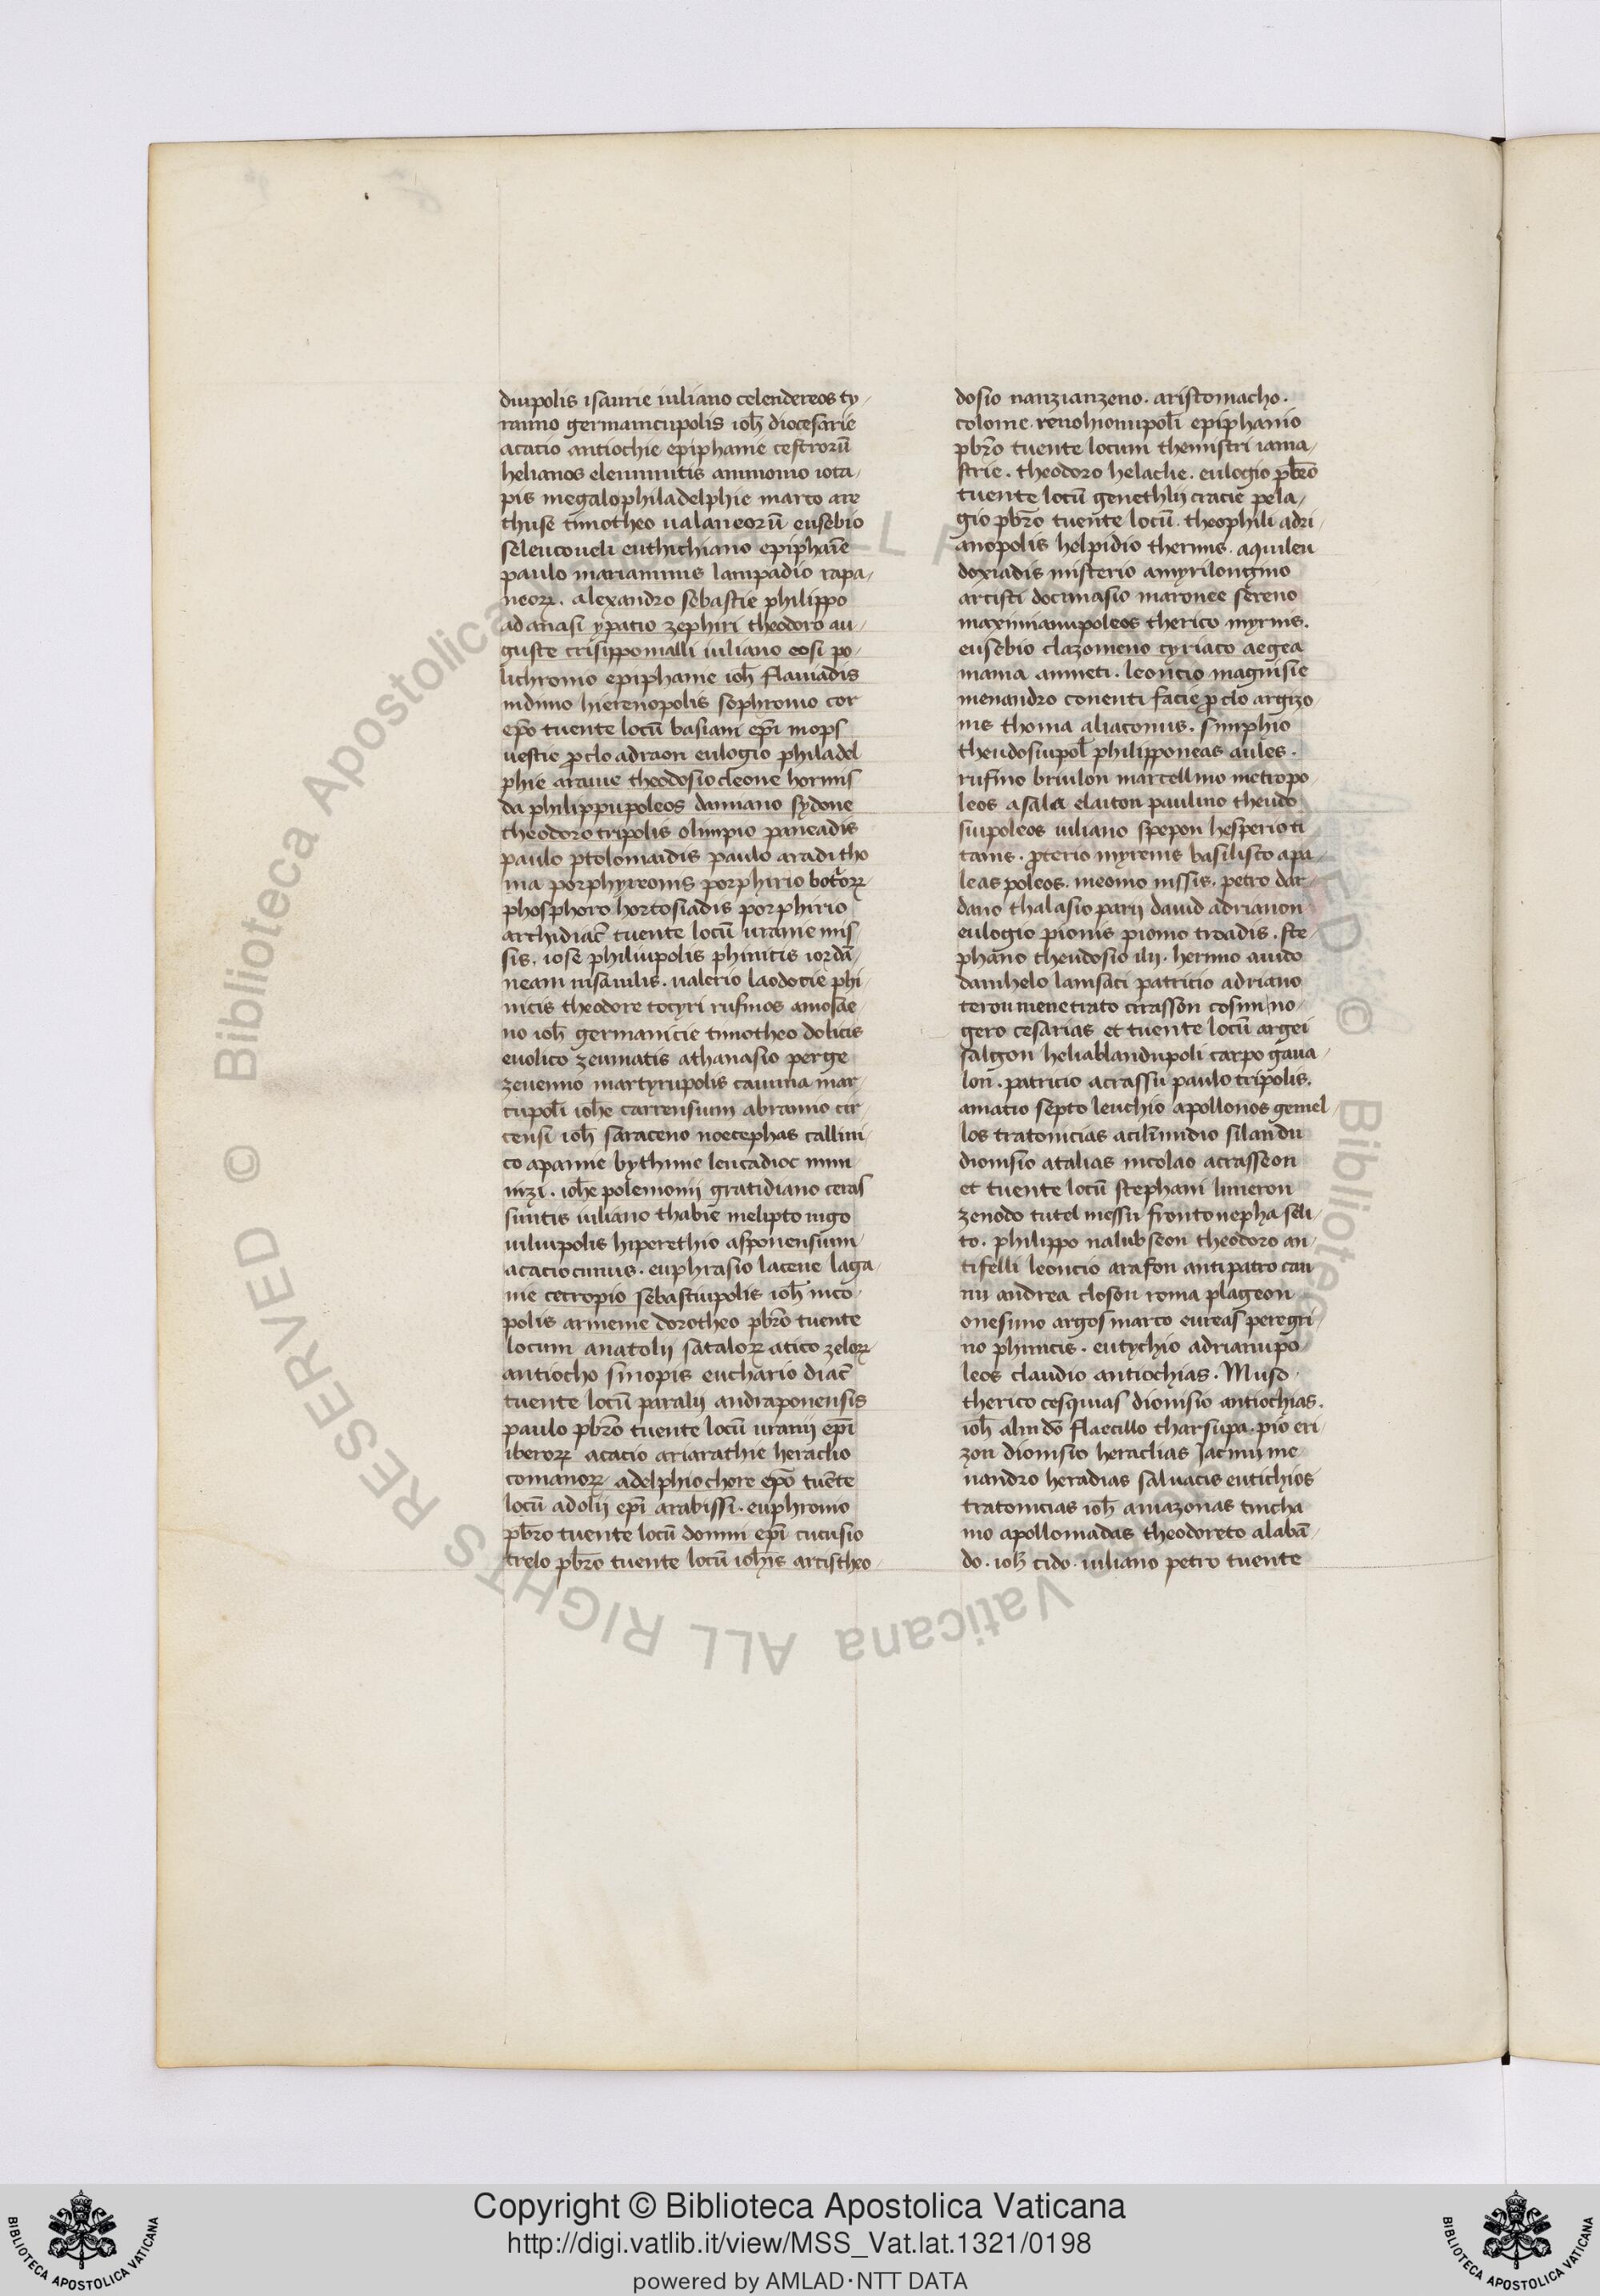 diupolis isaurie iuliano celendereos ty-
ranno germanicupolis ioh̄ diocesarie
acacio antiochie epiphanie cestrorū
helianos eleunuitis ammonio iota-
pis megalophiladelphie marco are
thuse timotheo ualaneorū eusebio
seleucoueli euthichiano epiphaīe
paulo mariamnis lampadio rapa-
neoꝝ. alexandro sebastie philippo
adanasi ypatio zephiri theodoro au-
guste crisippo malli iuliano eosi po-
lichronio epiphanie ioh̄ flauiadis
indimo hierenopolis sophronio cor
ep̄o tuente locū basiani ep̄i mops
uestie ꝓclo adraon eulogio philadel
phie araiue theodosio cleone hormis
da philippupoleos damiano sydone
theodoro tripolis olimpio paneadis
paulo ptolomaidis paulo aradi tho
ma porphyreonis porphirio botroꝝ
phosphoro hortosiadis porphirio
archidiac̄ tuente locū uranie mis
sis. iose philiupolis phinitis iordā-
neam nisauilis. ualerio laodocie phi-
nicis theodore tocyri rufinos amosae
no ioh̄ germanicie timotheo dolicis
euolico zeumatis athanasio perge
zeuenno martyrupolis cauma mar-
cupol̄i ioh̄e carrensium abramio cir-
censi ioh̄ saraceno noecephas callini-
co apamie bythinie leucadioc mim
inzi. ioh̄e polemonij gratidiano ceras
suntis iuliano thabie melipto iugo
iuliupolis hiperethio asponensium
acacio cinnis. euphrasio lacene laga-
nie cecropio sebastiupolis ioh̄ nico-
polis armenie dorotheo pb̄ro tuente
locum anatolij sataloꝝ atico zeloꝝ
antiocho sinopis euchario diac̄
tuente locū paralij andraponensis
paulo pb̄ro tuente locū uranij ep̄i
iberoꝝ acacio ariarathie heraclio
comanoꝝ adelphio chore ep̄o tuēte
locū adolij ep̄i arabissi. euphronio
pb̄ro tuente locū domni ep̄i cucusio
trelo pb̄ro tuente locū ioh̄is arcis theo-
dosio nanzianzeno. aristomacho.
colonie. renohionupol̄i epiphanio
pb̄ro tuente locum themistri iama-
strie. theodoro helaclie. eulogio pb̄ro
tuente locū genethlij cracie pela-
gio pb̄ro tuente locū. theophili adri-
anopolis helpidio thermis. aquileu
doxiadis misterio amyrilongino
arcisti docimasio maronee sereno
maximianupoleos therico myrnis.
eusebio clazomeno cyriaco aegea
mama anineti. leoncio magnisie
menandro conenti facie ꝓclo argizo-
nis thoma aliaconus. simphio
theudosiupol̄ philipponeas aules.
rufino briulon marcellino metropo-
leos asalex elaiton paulino theudo
siupoleos iuliano spepon hesperio ti
tanis. ꝓterio myrenis basilisco apa-
leas poleos. meonio nissis. petro dar-
dano thalasio parij dauid adrianon
eulogio pionis pionio troadis. ste-
phano theudosio ilij. hermo auido
danihelo lamsaci patricio adriano
terou menetrato cirasson cosini no-
gero cesarias et tuente locū argei
salgon heliablandupoli carpo gaua-
lon. patricio acrassu paulo tripolis.
amatio septo leuchio apollonos gemel-
los tratonicias acilimidio silandu
dionisio atalias nicolao acrasseon
et tuente locū stephani limeron
zenodo tutel messu fronto nepha seli-
to. philippo nalubseon theodoro an-
tifelli leoncio arafon antipatro cau
nu andrea closon roma plageon
onesimo argos marco eureas peregri-
no phinicis. eutychio adrianupo-
leos claudio antiochias. Muso.
therico cesquias dionisio antiochias.
ioh̄ alindō flaecillo tharsupa. pio eri-
zon dionisio heraclias Iacinu me-
nandro heradias saluacis eutichios
tratonicias ioh̄ amazonas tincha
nio apolloniadas theodoreto alabā-
do. ioh̄ cido. iuliano petro tuente
Copyright © Biblioteca Apostolica Vaticana
http://digi.vatlib.it/view/MSS_Vat.lat.1321/0198
powered by AMLAD·NTT DATA